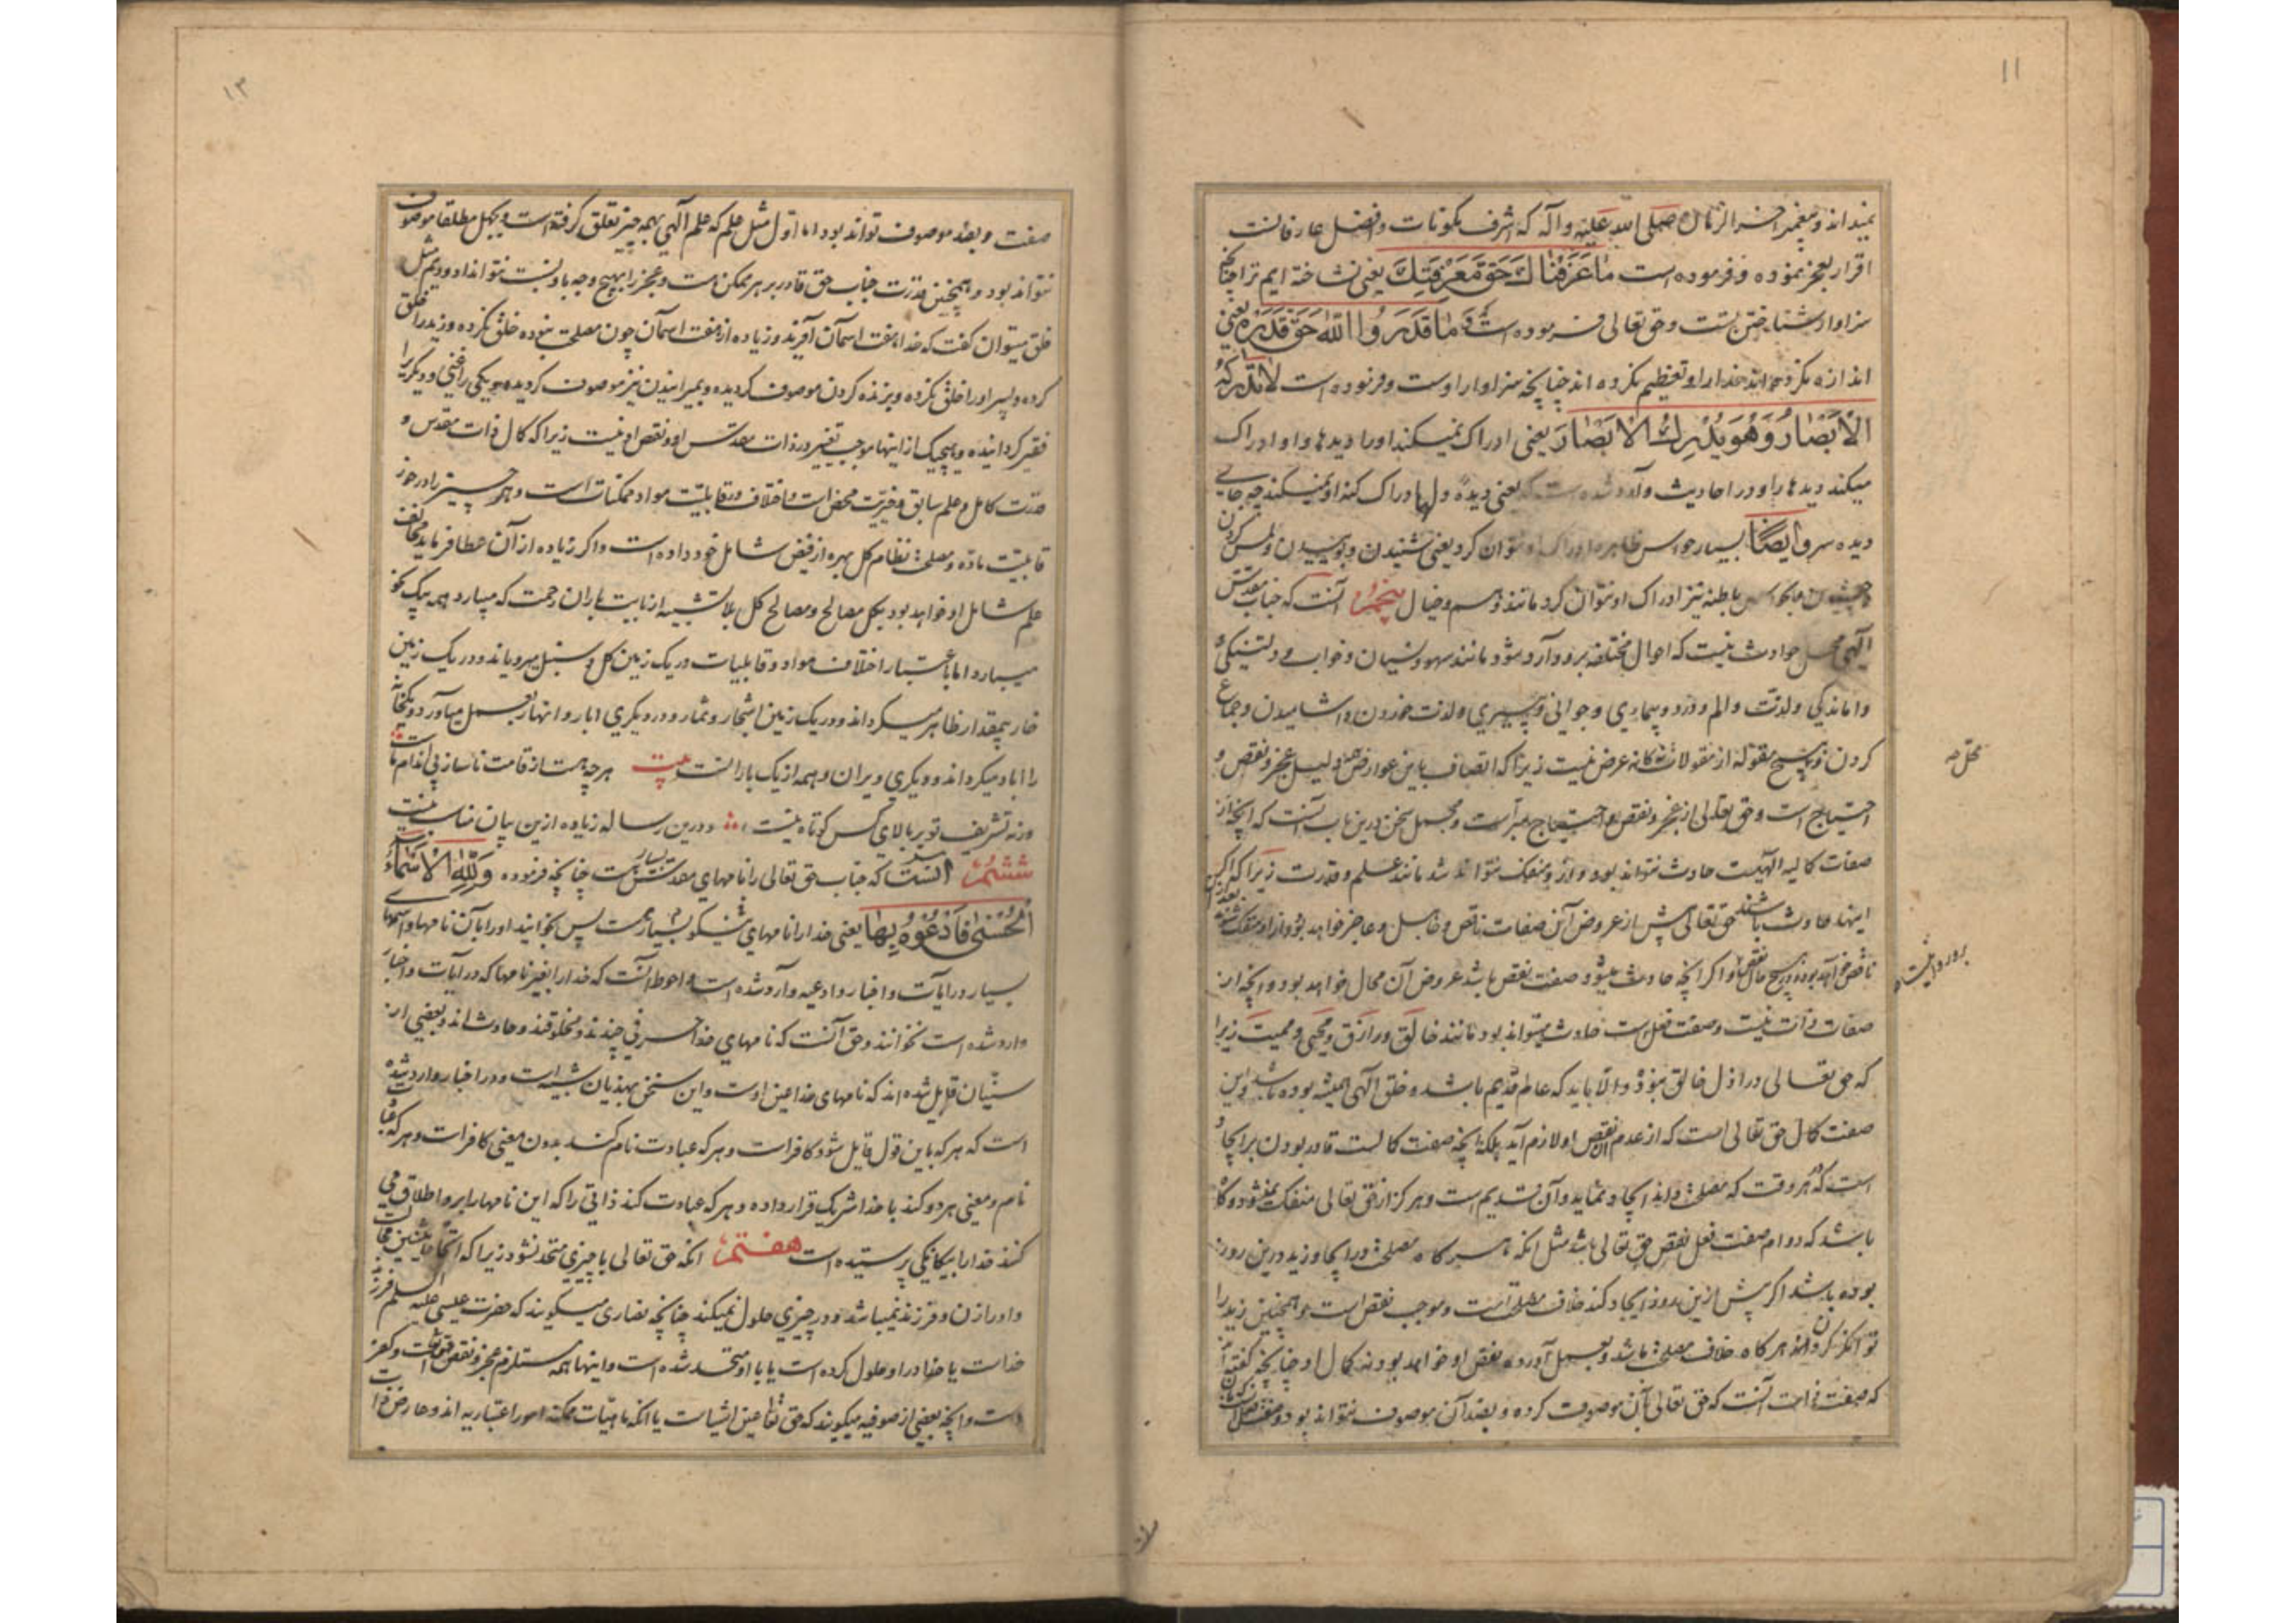 ۱۱
نمیداند و پیغمبر آخر الزمان صلی الله علیه و آله که اشرف مکونات و افضل عارفانست
اقرار بعجز نموده و فرموده است مَا عَرَفْنَاكَ حَقَّ مَعْرِفَتِكَ یعنی نشناخته ایم ترا چنانچه
سزاوار شناختن تست و حق تعالی فرموده است وَ مَا قَدَرُوا اللّٰهَ حَقَّ قَدْرِهِ یعنی
اندازه نکرده اند خدا را و تعظیم نکرده اند چنانچه سزاوار اوست و فرموده است لَا تُدْرِكُهُ
الْاَبْصَارُ وَهُوَ يُدْرِكُ الْاَبْصَارَ یعنی ادراک نمیکند او را دیدها و او ادراک
میکند دیدها را و در احادیث وارد شده است که یعنی دیده دلها ادراک کنه او نمیکنند چه جای
دیده سر وایضًا بسایر حواس ظاهره ادراک او نتوان کرد یعنی شنیدن و بوییدن و لمس کردن
و چشیدن و بحواس باطنه نیز ادراک او نتوان کرد مانند وهم و خیال پنجم آنست که جناب مقدس
الهی محل حوادث نیست که احوال مختلفه برو وارد شود مانند سهو و نسیان و خواب و دلتنگی
و اماندگی و لذت و الم و درد و بیماری و جوانی و پیری و لذت خوردن و اشامیدن و جماع
کردن و هیچ مقوله از مقولات نه کانه عرض نیست زیرا که اتصاف باین عوارض دلیل عجز و نقص و
احتیاج است و حق تعالی از عجز و نقص و احتیاج مبراست و مجمل سخن درین باب آنست که آنچه از
صفات کمالیه الهیست حادث نتواند بود و ازو منفک نتواند شد مانند علم و قدرت زیرا که اگر
اینها حادث باشند حق تعالی پیش از عروض آن صفات ناقص و جاهل و عاجز خواهد بود و از او منفک شوند
ناقص خواهد بود و اگر آنچه حادث میشود صفت نقص باشد عروض آن محال خواهد بود و آنچه از
صفات ذات نیست و صفت فعل است حادث میتواند بود مانند خالق و رازق و محیی و ممیت زیرا
که حق تعالی در ازل خالق نبود و الا باید که عالم قدیم باشد و خلق الهی همیشه بوده باشد و این
صفت کمال حق تعالی است که از عدم آن نقص او لازم آید بلکه آنچه صفت کمالست قادر بودن بر ایجاد
است که هر وقت که مصلحت داند ایجاد نماید و آن قدیم است و هرگز از حق تعالی منفک نمیشود و گاه
باشد که دوام صفت فعل نقص حق تعالی باشد مثل آنکه هر گاه مصلحت در ایجاد زید درین روز
بوده باشد اگر پیش ازین روز ایجاد کند خلاف مصلحت است و موجب نقص است و همچنین زید را
توانگر کردن هر گاه خلاف مصلحت باشد و بعمل آورد نقص او خواهد بود نه کمال او چنانچه گفته اند
که صفت ذات آنست که حق تعالی بآن موصوف گردد و بضد آن موصوف نتواند بود و صفت فعل آن
۱۲
صفت و بضد موصوف تواند بود اما اول مثل علم که علم الهی بهمه چیز تعلق گرفته است و بجهل مطلقا موصوف
نتواند بود و همچنین قدرت جناب حق قادر بر هر ممکن است و عجز را بهیچ وجه باو نسبت نتوان داد دویم مثل
خلق میتوان گفت که خدا هفت اسمان آفرید و زیاده از هفت اسمان چون مصلحت نبوده خلق نکرده و زید را خلق
کرده و پسر او را خلق نکرده و بزنده کردن موصوف گردیده و بمیرانیدن نیز موصوف گردیده و یکی را غنی و دیگری را
فقیر گردانیده و هیچیک از اینها موجب تغییر در ذات مقدس او و نقص او نیست زیرا که کمال ذات مقدس و
قدرت کامل و علم سابق و خیریت محض است و اختلاف در قابلیت مواد ممکنات است و هر چیز را در خور
قابلیت ماده و مصلحت نظام کل بهره از فیض شامل خود داده است و اگر زیاده از آن عطا فرماید مخالف
علم شامل او خواهد بود بکل مصالح و مصالح کل بلا تشبیه از بابت باران رحمت که میبارد همه بیک نحو
میبارد اما باعتبار اختلاف مواد و قابلیات در یک زمین گل و سنبل میرویاند و در یک زمین
خار بیمقدار ظاهر میگرداند و در یک زمین اشجار و ثمار و در دیگری ابار و انهار بعمل میآورد و یک خانه
را اباد میگرداند و دیگری ویران و همه از یک بارانست بیت هر چه هست از قامت ناساز بی اندام ماست
ورنه تشریف تو بر بالای کس کوتاه نیست و درین رساله زیاده ازین بیان مناسب نیست
ششم آنست که جناب حق تعالی را نامهای مقدس بسیار است چنانچه فرموده وَلِلّٰهِ الْاَسْمَاءُ
الْحُسْنٰى فَادْعُوهُ بِهَا یعنی خدا را نامهای نیکو بسیار هست پس بخوانید او را بآن نامها و اسمهای
بسیار در آیات و اخبار و ادعیه وارد شده است و احوط آنست که خدا را بغیر نامها که در آیات و اخبار
وارد شده است نخوانند و حق آنست که نامهای خدا حرفی چندند و مخلوقند و حادث اند و بعضی از
سنیان قایل شده اند که نامهای خدا عین اوست و این سخن بهذیان شبیه است و در اخبار وارد شده
است که هر که باین قول قایل شود کافر است و هر که عبادت نام کند بدون معنی کافر است و هر که عبادت
نام و معنی هر دو کند با خدا شریک قرار داده و هر که عبادت کند ذاتی را که این نامها را برو اطلاق می
کنند خدا را بیگانگی پرستیده است هفتم آنکه حق تعالی با چیزی متحد نشود زیرا که اتحاد اثنین محال است
و او را زن و فرزند نمیباشد و در چیزی حلول نمیکند چنانچه نصاری میگویند که حضرت عیسی علیه السلم فرزند
خداست یا خدا در او حلول کرده است یا با او متحد شده است و اینها همه مستلزم عجز و نقص و کفر
است و آنچه بعضی از صوفیه میگویند که حق تعالی عین اشیاست یا آنکه ماهیات ممکنه امور اعتباریه اند و عارض ذات